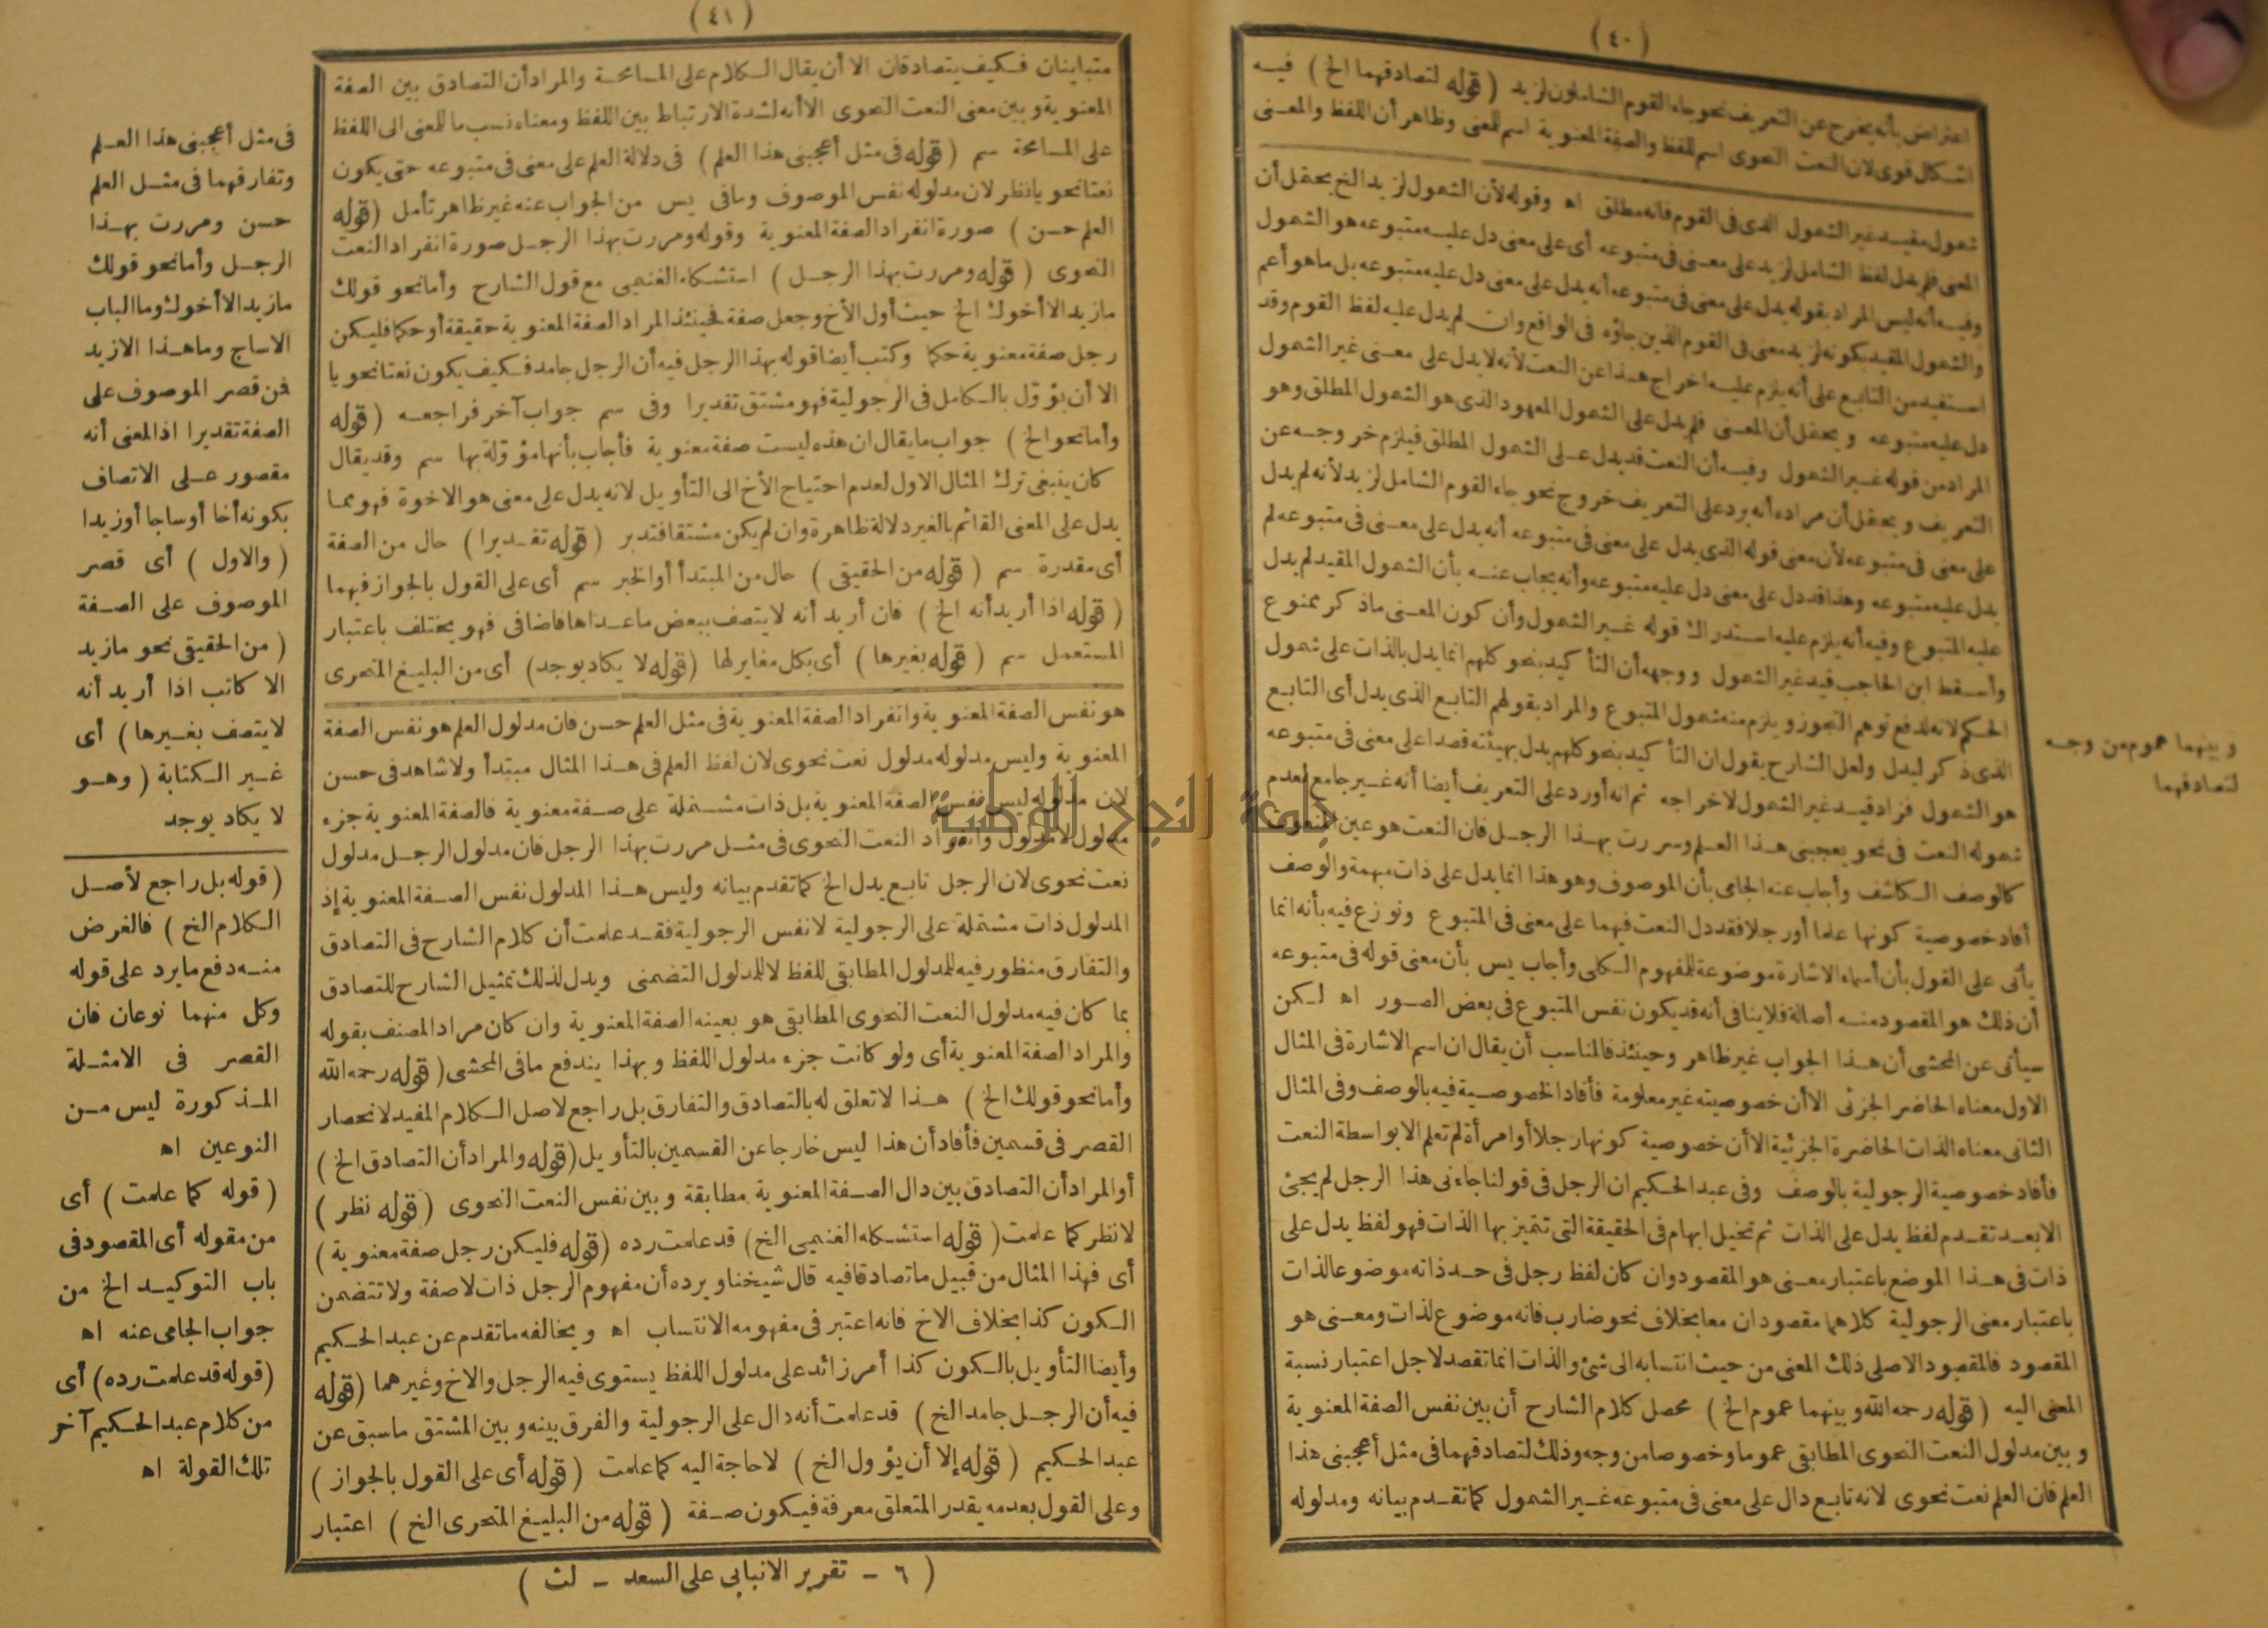 (٤٠)
اعتراض بأنه يخرج عن التعريف نحو جاء القوم الشاملون لزيد (قوله لتصادقهما الخ) فيه
اشكال قوى لان النعت النحوى اسم للفظ والصفة المعنوية اسم للمعنى وظاهر أن اللفظ والمعنى
شمول مقيد غير الشمول الذى فى القوم فانه مطلق اه وقوله لأن الشمول لزيد الخ يحتمل أن
المعنى فلم يدل لفظ الشامل لزيد على معنى فى متبوعه أى على معنى دل عليه متبوعه هو الشمول
وفيه أنه ليس المراد بقوله يدل على معنى فى متبوعه أنه يدل على معنى دل عليه متبوعه بل ما هو أعم
والشمول المقيد بكونه لزيد معنى فى القوم الذين جاؤه فى الواقع وان لم يدل عليه لفظ القوم وقد
استفيد من التابع على أنه يلزم عليه اخراج هذا عن النعت لأنه لا يدل على معنى غير الشمول
دل عليه متبوعه ويحتمل أن المعنى فلم يدل على الشمول المعهود الذى هو الشمول المطلق وهو
المراد من قوله غير الشمول وفيه أن النعت قد يدل على الشمول المطلق فيلزم خروجه عن
التعريف ويحتمل أن مراده أنه يرد على التعريف خروج نحو جاء القوم الشامل لزيد لأنه لم يدل
على معنى فى متبوعه لأن معنى قوله الذى يدل على معنى فى متبوعه أنه يدل على معنى فى متبوعه لم
يدل عليه متبوعه وهذا قد دل على معنى دل عليه متبوعه وأنه يجاب عنه بأن الشمول المقيد لم يدل
عليه المتبوع وفيه أنه يلزم عليه استدراك قوله غير الشمول وأن كون المعنى ماذكر ممنوع
وأسقط ابن الحاجب قيد غير الشمول ووجهه أن التأكيد بنحو كلهم انما يدل بالذات على شمول
الحكم لانه لدفع توهم التجوز ويلزم منه شمول المتبوع والمراد بقولهم التابع الذى يدل أى التابع
الذى ذكر ليدل ولعل الشارح يقول ان التأكيد بنحو كلهم يدل بهيئته قصدا على معنى فى متبوعه
هو الشمول فزاد قيد غير الشمول لاخراجه ثم انه أورد على التعريف أيضا أنه غير جامع لعدم
شموله النعت فى نحو يعجبنى هذا العلم ومررت بهذا الرجل فان النعت هو عين المنعوت
كالوصف الكاشف وأجاب عنه الجامى بأن الموصوف وهو هذا انما يدل على ذات مبهمة والوصف
أفاد خصوصية كونها علما أو رجلا فقد دل النعت فيهما على معنى فى المتبوع ونوزع فيه بأنه انما
يأتى على القول بأن أسماء الاشارة موضوعة للمفهوم الكلى وأجاب يس بأن معنى قوله فى متبوعه
أن ذلك هو المقصود منه أصالة فلا ينافى أنه قد يكون نفس المتبوع فى بعض الصور اه لكن
سيأتى عن المحشى أن هذا الجواب غير ظاهر وحينئذ فالمناسب أن يقال ان اسم الاشارة فى المثال
الاول معناه الحاضر الجزئى الا أن خصوصيته غير معلومة فأفاد الخصوصية فيه بالوصف وفى المثال
الثانى معناه الذات الحاضرة الجزئية الا أن خصوصية كونها رجلا أو امرأة لم تعلم الا بواسطة النعت
فأفاد خصوصية الرجولية بالوصف وفى عبد الحكيم ان الرجل فى قولنا جاءنى هذا الرجل لم يجئ
الا بعد تقدم لفظ يدل على الذات ثم تخيل ابهام فى الحقيقة التى تتميز بها الذات فهو لفظ يدل على
ذات فى هذا الموضع باعتبار معنى هو المقصود وان كان لفظ رجل فى حد ذاته موضوعا لذات
باعتبار معنى الرجولية كلاهما مقصودان معا بخلاف نحو ضارب فانه موضوع لذات ومعنى هو
المقصود فالمقصود الاصلى ذلك المعنى من حيث انتسابه الى شئ والذات انما تقصد لاجل اعتبار نسبة
المعنى اليه (قوله رحمه الله وبينهما عموم الخ) محصل كلام الشارح أن بين نفس الصفة المعنوية
وبين مدلول النعت النحوى المطابقى عموما وخصوصا من وجه وذلك لتصادقهما فى مثل أعجبنى هذا
العلم فان العلم نعت نحوى لانه تابع دال على معنى فى متبوعه غير الشمول كما تقدم بيانه ومدلوله
وبينهما عموم من وجه
لتصادقهما
(٤١)
متباينان فكيف يتصادقان الا أن يقال الكلام على المسامحة والمراد أن التصادق بين الصفة
المعنوية وبين معنى النعت النحوى الا أنه لشدة الارتباط بين اللفظ ومعناه نسب ما للمعنى الى اللفظ
على المسامحة سم (قوله فى مثل أعجبنى هذا العلم) فى دلالة العلم على معنى فى متبوعه حتى يكون
نعتا نحويا نظر لان مدلوله نفس الموصوف ومافى يس من الجواب عنه غير ظاهر تأمل (قوله
العلم حسن) صورة انفراد الصفة المعنوية وقوله ومررت بهذا الرجل صورة انفراد النعت
النحوى (قوله ومررت بهذا الرجل) استشكله الغنيمى مع قول الشارح وأما نحو قولك
مازيد الا أخوك الخ حيث أول الأخ وجعل صفة فحينئذ المراد الصفة المعنوية حقيقة أو حكما فليكن
رجل صفة معنوية حكما وكتب أيضا قوله بهذا الرجل فيه أن الرجل جامد فكيف يكون نعتا نحويا
الا أن يؤول بالكامل فى الرجولية فهو مشتق تقديرا وفى سم جواب آخر فراجعه (قوله
وأما نحو الخ) جواب ما يقال ان هذه ليست صفة معنوية فأجاب بأنها مؤولة بها سم وقد يقال
كان ينبغى ترك المثال الاول لعدم احتياج الأخ الى التأويل لانه يدل على معنى هو الاخوة فهو مما
يدل على المعنى القائم بالغير دلالة ظاهرة وان لم يكن مشتقا فتدبر (قوله تقديرا) حال من الصفة
أى مقدرة سم (قوله من الحقيقى) حال من المبتدأ أو الخبر سم أى على القول بالجواز فيهما
(قوله اذا أريد أنه الخ) فان أريد أنه لا يتصف ببعض ماعداها فاضافى فهو يختلف باعتبار
المستعمل سم (قوله بغيرها) أى بكل مغاير لها (قوله لا يكاد يوجد) أى من البليغ المتحرى
هو نفس الصفة المعنوية وانفراد الصفة المعنوية فى مثل العلم حسن فان مدلول العلم هو نفس الصفة
المعنوية وليس مدلوله مدلول نعت نحوى لان لفظ العلم فى هذا المثال مبتدأ ولا شاهد فى حسن
لان مدلوله ليس نفس الصفة المعنوية بل ذات مشتملة على صفة معنوية فالصفة المعنوية جزء
مدلول لا مدلول وانفراد النعت النحوى فى مثل مررت بهذا الرجل فان مدلول الرجل مدلول
نعت نحوى لان الرجل تابع يدل الخ كما تقدم بيانه وليس هذا المدلول نفس الصفة المعنوية إذ
المدلول ذات مشتملة على الرجولية لا نفس الرجولية فقد علمت أن كلام الشارح فى التصادق
والتفارق منظور فيه للمدلول المطابقى للفظ لا للمدلول التضمنى ويدل لذلك تمثيل الشارح للتصادق
بما كان فيه مدلول النعت النحوى المطابقى هو بعينه الصفة المعنوية وان كان مراد المصنف بقوله
والمراد الصفة المعنوية أى ولو كانت جزء مدلول اللفظ وبهذا يندفع مافى المحشى (قوله رحمه الله
وأما نحو قولك الخ) هذا لا تعلق له بالتصادق والتفارق بل راجع لاصل الكلام المفيد لانحصار
القصر فى قسمين فأفاد أن هذا ليس خارجا عن القسمين بالتأويل (قوله والمراد أن التصادق الخ)
أو المراد أن التصادق بين دال الصفة المعنوية مطابقة وبين نفس النعت النحوى (قوله نظر)
لا نظر كما علمت (قوله استشكله الغنيمى الخ) قد علمت رده (قوله فليكن رجل صفة معنوية)
أى فهذا المثال من قبيل ما تصادقا فيه قال شيخنا ويرده أن مفهوم الرجل ذات لا صفة ولا تتضمن
الكون كذا بخلاف الاخ فانه اعتبر فى مفهومه الانتساب اه ويخالفه ما تقدم عن عبد الحكيم
وأيضا التأويل بالكون كذا أمر زائد على مدلول اللفظ يستوى فيه الرجل والاخ وغيرهما (قوله
فيه أن الرجل جامد الخ) قد علمت أنه دال على الرجولية والفرق بينه وبين المشتق ماسبق عن
عبد الحكيم (قوله إلا أن يؤول الخ) لا حاجة اليه كما علمت (قوله أى على القول بالجواز)
وعلى القول بعدمه يقدر المتعلق معرفة فيكون صفة (قوله من البليغ المتحرى الخ) اعتبار
فى مثل أعجبنى هذا العلم
وتفارقهما فى مثل العلم
حسن ومررت بهذا
الرجل وأما نحو قولك
مازيد الا أخوك وما الباب
الا ساج وما هذا الا زيد
فمن قصر الموصوف على
الصفة تقديرا اذ المعنى أنه
مقصور على الاتصاف
بكونه أخا أو ساجا أو زيدا
(والاول) أى قصر
الموصوف على الصفة
(من الحقيقى نحو مازيد
الا كاتب اذا أريد أنه
لا يتصف بغيرها) أى
غير الكتابة (وهو
لا يكاد يوجد
(قوله بل راجع لأصل
الكلام الخ) فالغرض
منه دفع ما يرد على قوله
وكل منهما نوعان فان
القصر فى الامثلة
المذكورة ليس من
النوعين اه
(قوله كما علمت) أى
من مقوله أى المقصود فى
باب التوكيد الخ من
جواب الجامى عنه اه
(قوله قد علمت رده) أى
من كلام عبد الحكيم آخر
تلك القولة اه
(٦ - تقرير الانبابى على السعد - لث)
جامعة النجاح الوطنية